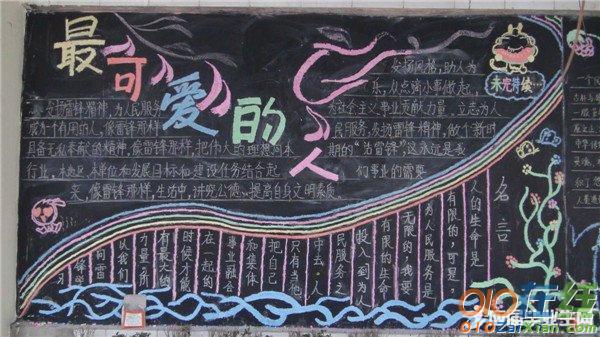 最可爱的人
发扬雷锋精神,为人民服务
成为一个有用的人,像雷锋那样
具备无私奉献的精神,像雷锋那样,把伟大的理想同本
行业、本地区、本单位和发展目标和建设任务结合起
来,像雷锋那样,生活中,讲究公德、提高自身文明素质。
发扬风格,助人为
乐,从点滴小事做起,
为社会主义事业贡献力量。立志为人
民服务,发扬雷锋精神,做个新时
期的"活雷锋"这永远是我
们事业的需要
未完待续…
名言
人的生命是
有限的,可是,
为人民服务是
无限的,我要
把有限的生命
投入到为人
民服务之
中去。人
只有当他
把自己
和集体
事业融合
在一起的
时候才能
有最大的
力量。所
以我们
向雷
锋学
习
在线